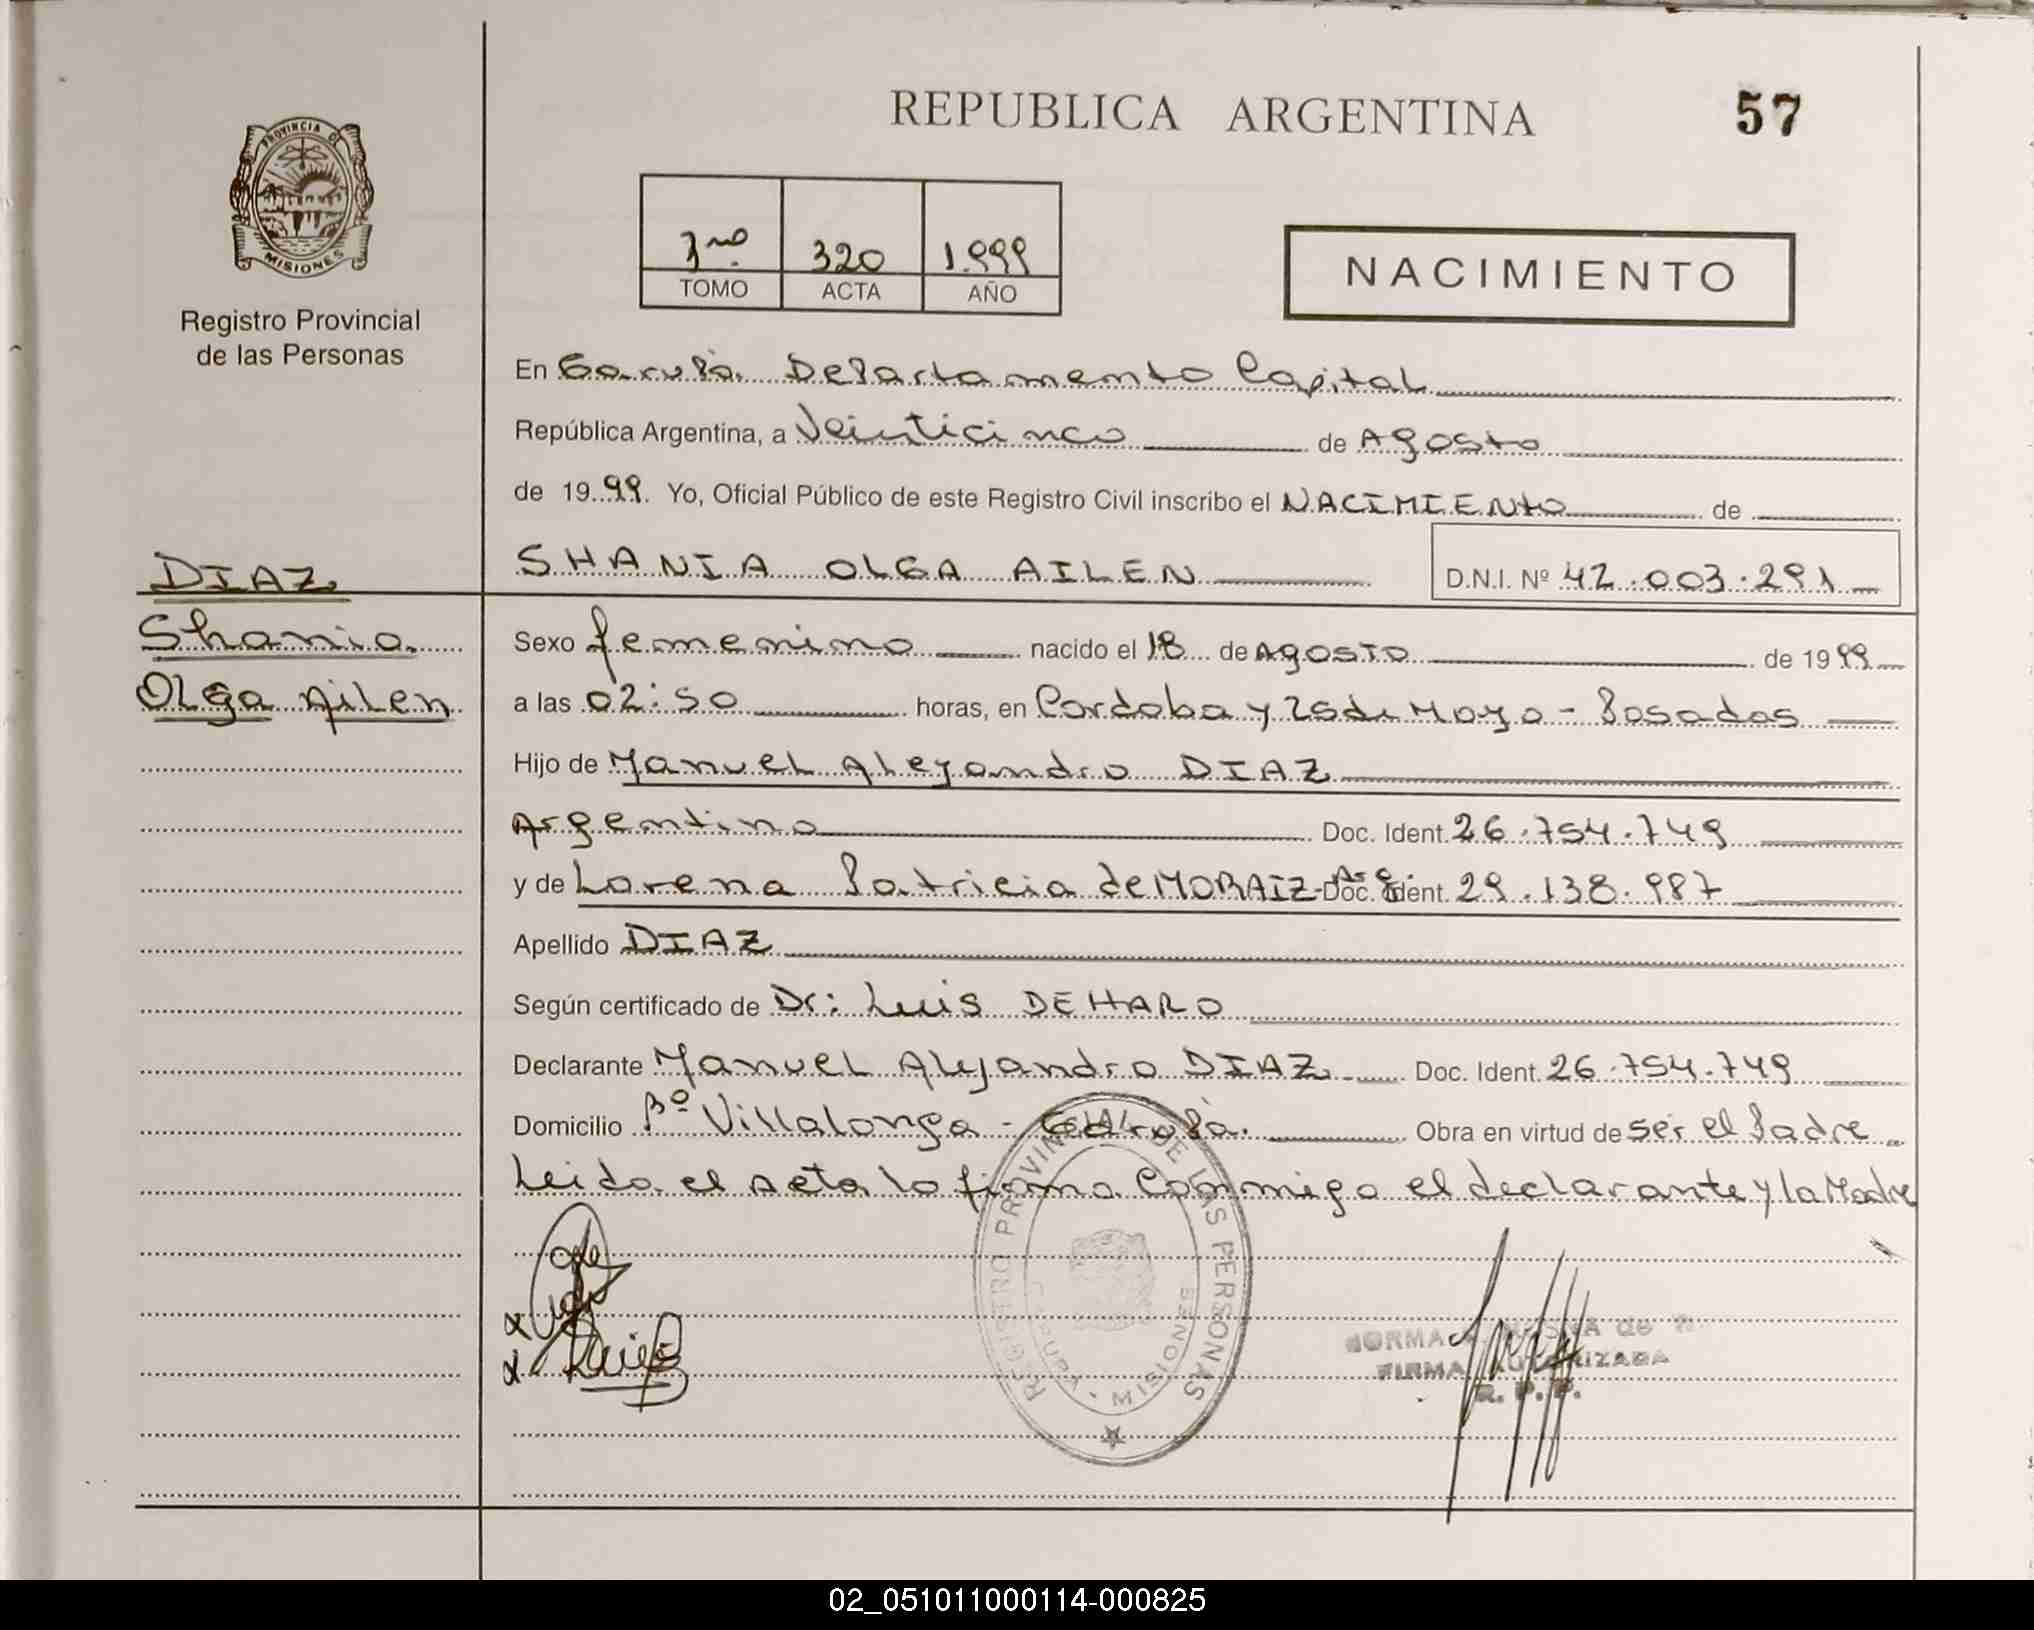 REPUBLICA ARGENTINA
57
PROVINCIA DE
MISIONES
Registro Provincial
de las Personas
3ro. 320 1.999
TOMO ACTA AÑO
NACIMIENTO
En Garupá. Departamento Capital
República Argentina, a Veinticinco de Agosto
de 1999. Yo, Oficial Público de este Registro Civil inscribo el NACIMIENto de
SHANIA OLGA AILEN D.N.I. Nº 42.003.291
DIAZ
Shania
Olga Ailen
Sexo femenino nacido el 18 de AgOSTO de 1999
a las 02:50 horas, en Cordoba y 25 de Mayo - Posadas
Hijo de Manuel Aleyandro DIAZ
Argentino Doc. Ident. 26.754.749
y de Lorena Patricia de MORAIZ-Arg. Doc. Ident. 29.138.987
Apellido DIAZ
Según certificado de Dr: Luis DEHARO
Declarante Manuel Alejandro DIAZ Doc. Ident. 26.754.749
Domicilio Bº Villalonga - Garupá. Obra en virtud de ser el Padre
Leida el acta la firma conmigo el declarante y la Madre
REGISTRO PROVINCIAL DE LAS PERSONAS
MISIONES
NORMA de
FIRMA AUTORIZADA
R. P. P.
02_051011000114-000825